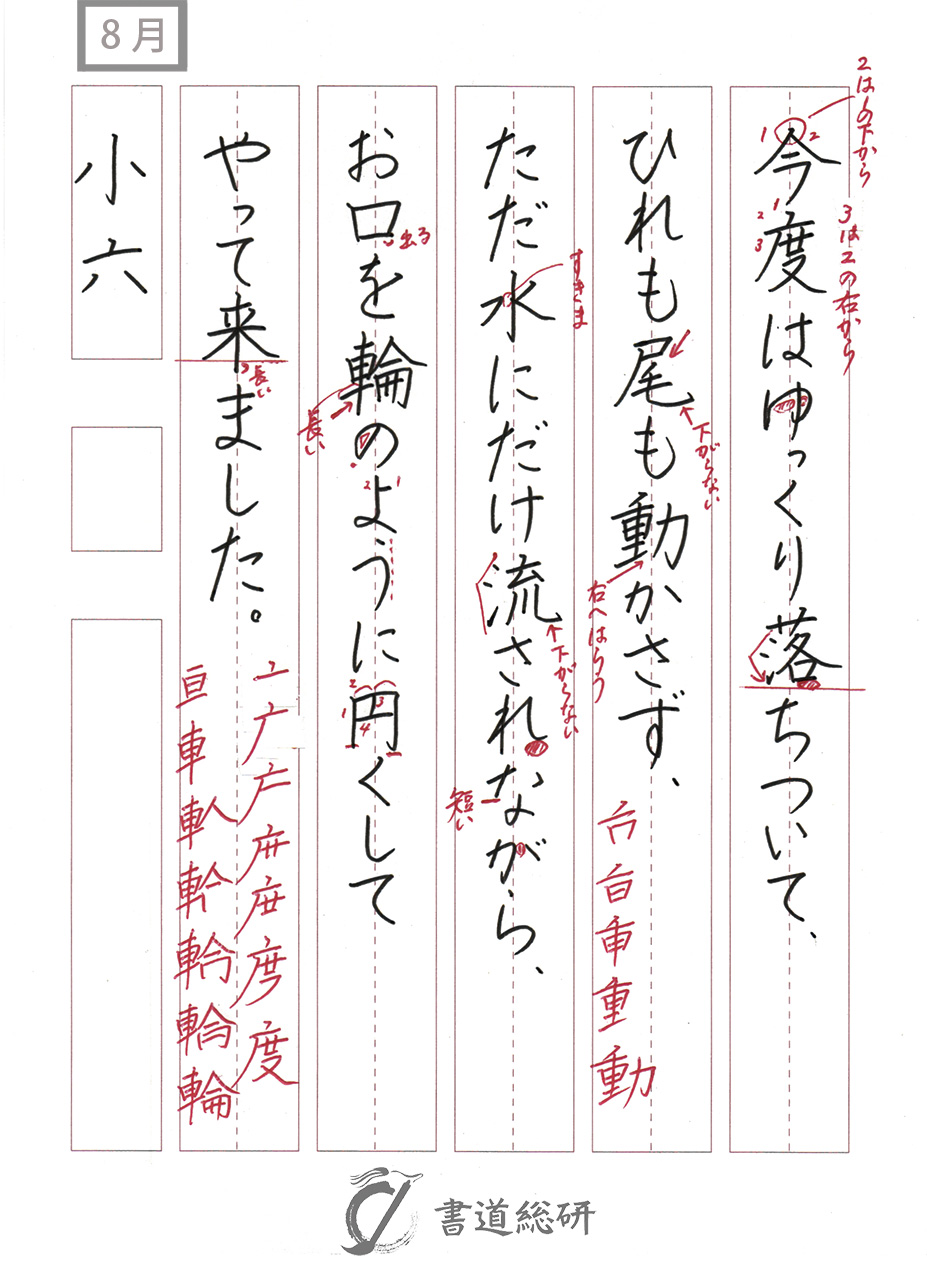 8月
今度はゆっくり落ちついて、
ひれも尾も動かさず、
ただ水にだけ流されながら、
お口を輪のように円くして
やって来ました。
小六
2は1の下から
3は2の右から
下がらない
右へはらう
すきま
下がらない
短い
出る
長い
長い
書道総研